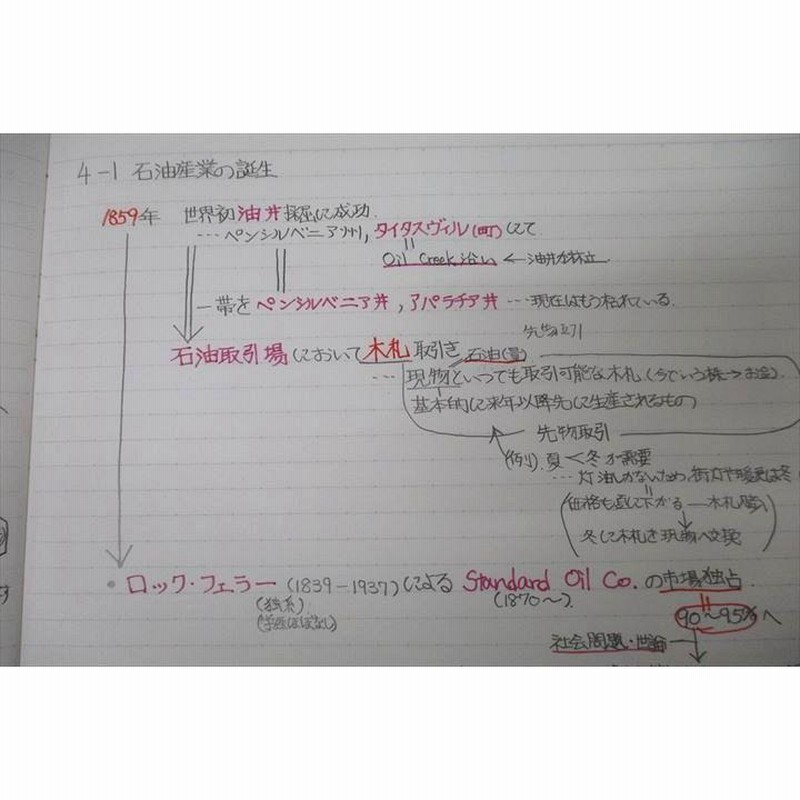 4-1 石油産業の誕生
1859年 世界初油井採掘に成功.
… ペンシルベニア州, タイタスヴィル(町)にて
Oil Creek 沿い ← 油井が林立
一帯をペンシルベニア井, アパラチア井 … 現在はもう枯れている.
先物取引
石油取引場において木札取引き 石油(量)
… 現物といつでも取引可能な木札(今でいう株→お金).
基本的に来年以降先に生産されるもの
先物取引
(例). 夏 < 冬が需要
… 灯油しかないため, 街灯や暖房は冬
価格も夏に下がる — 木札買い
冬に木札を現物へ交換
• ロック・フェラー (1839-1937)による Standard Oil Co. の市場独占.
(独系) (1870~).
90~95%へ
社会問題・世論